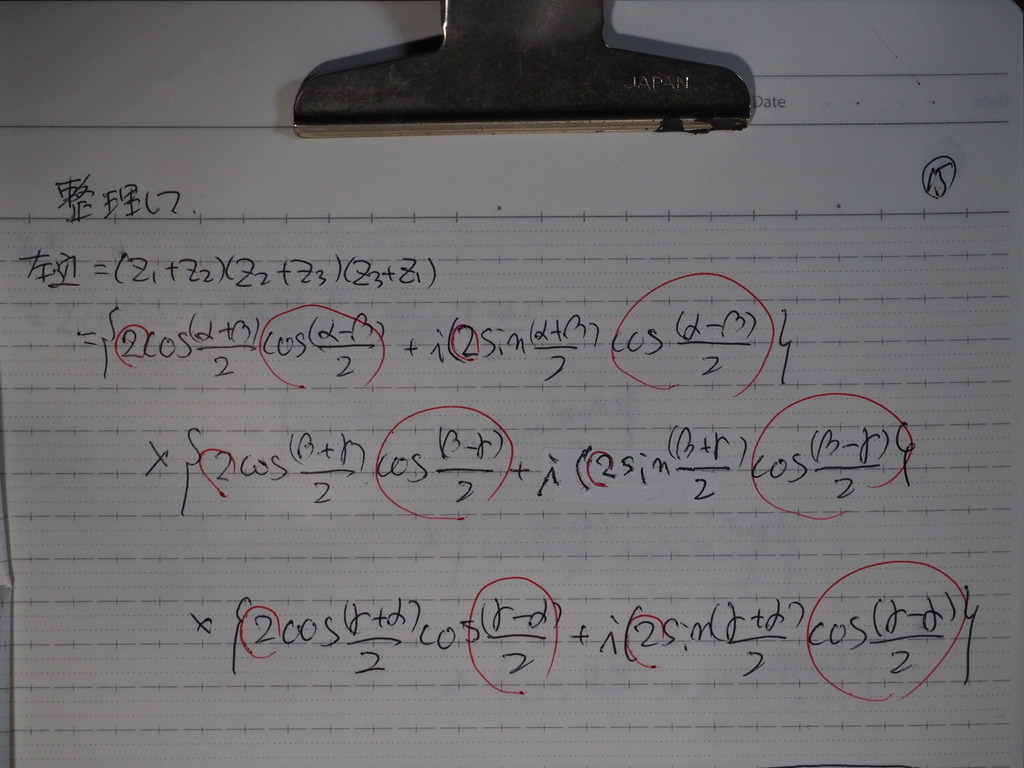 JAPAN
Date
⑮
整理して.
左辺 = (z₁+z₂)(z₂+z₃)(z₃+z₁)
= {2cos(α+β)/2 cos(α-β)/2 + i(2sin(α+β)/2 cos(α-β)/2}
× {2cos(β+γ)/2 cos(β-γ)/2 + i(2sin(β+γ)/2 cos(β-γ)/2}
× {2cos(γ+α)/2 cos(γ-α)/2 + i(2sin(γ+α)/2 cos(γ-α)/2}